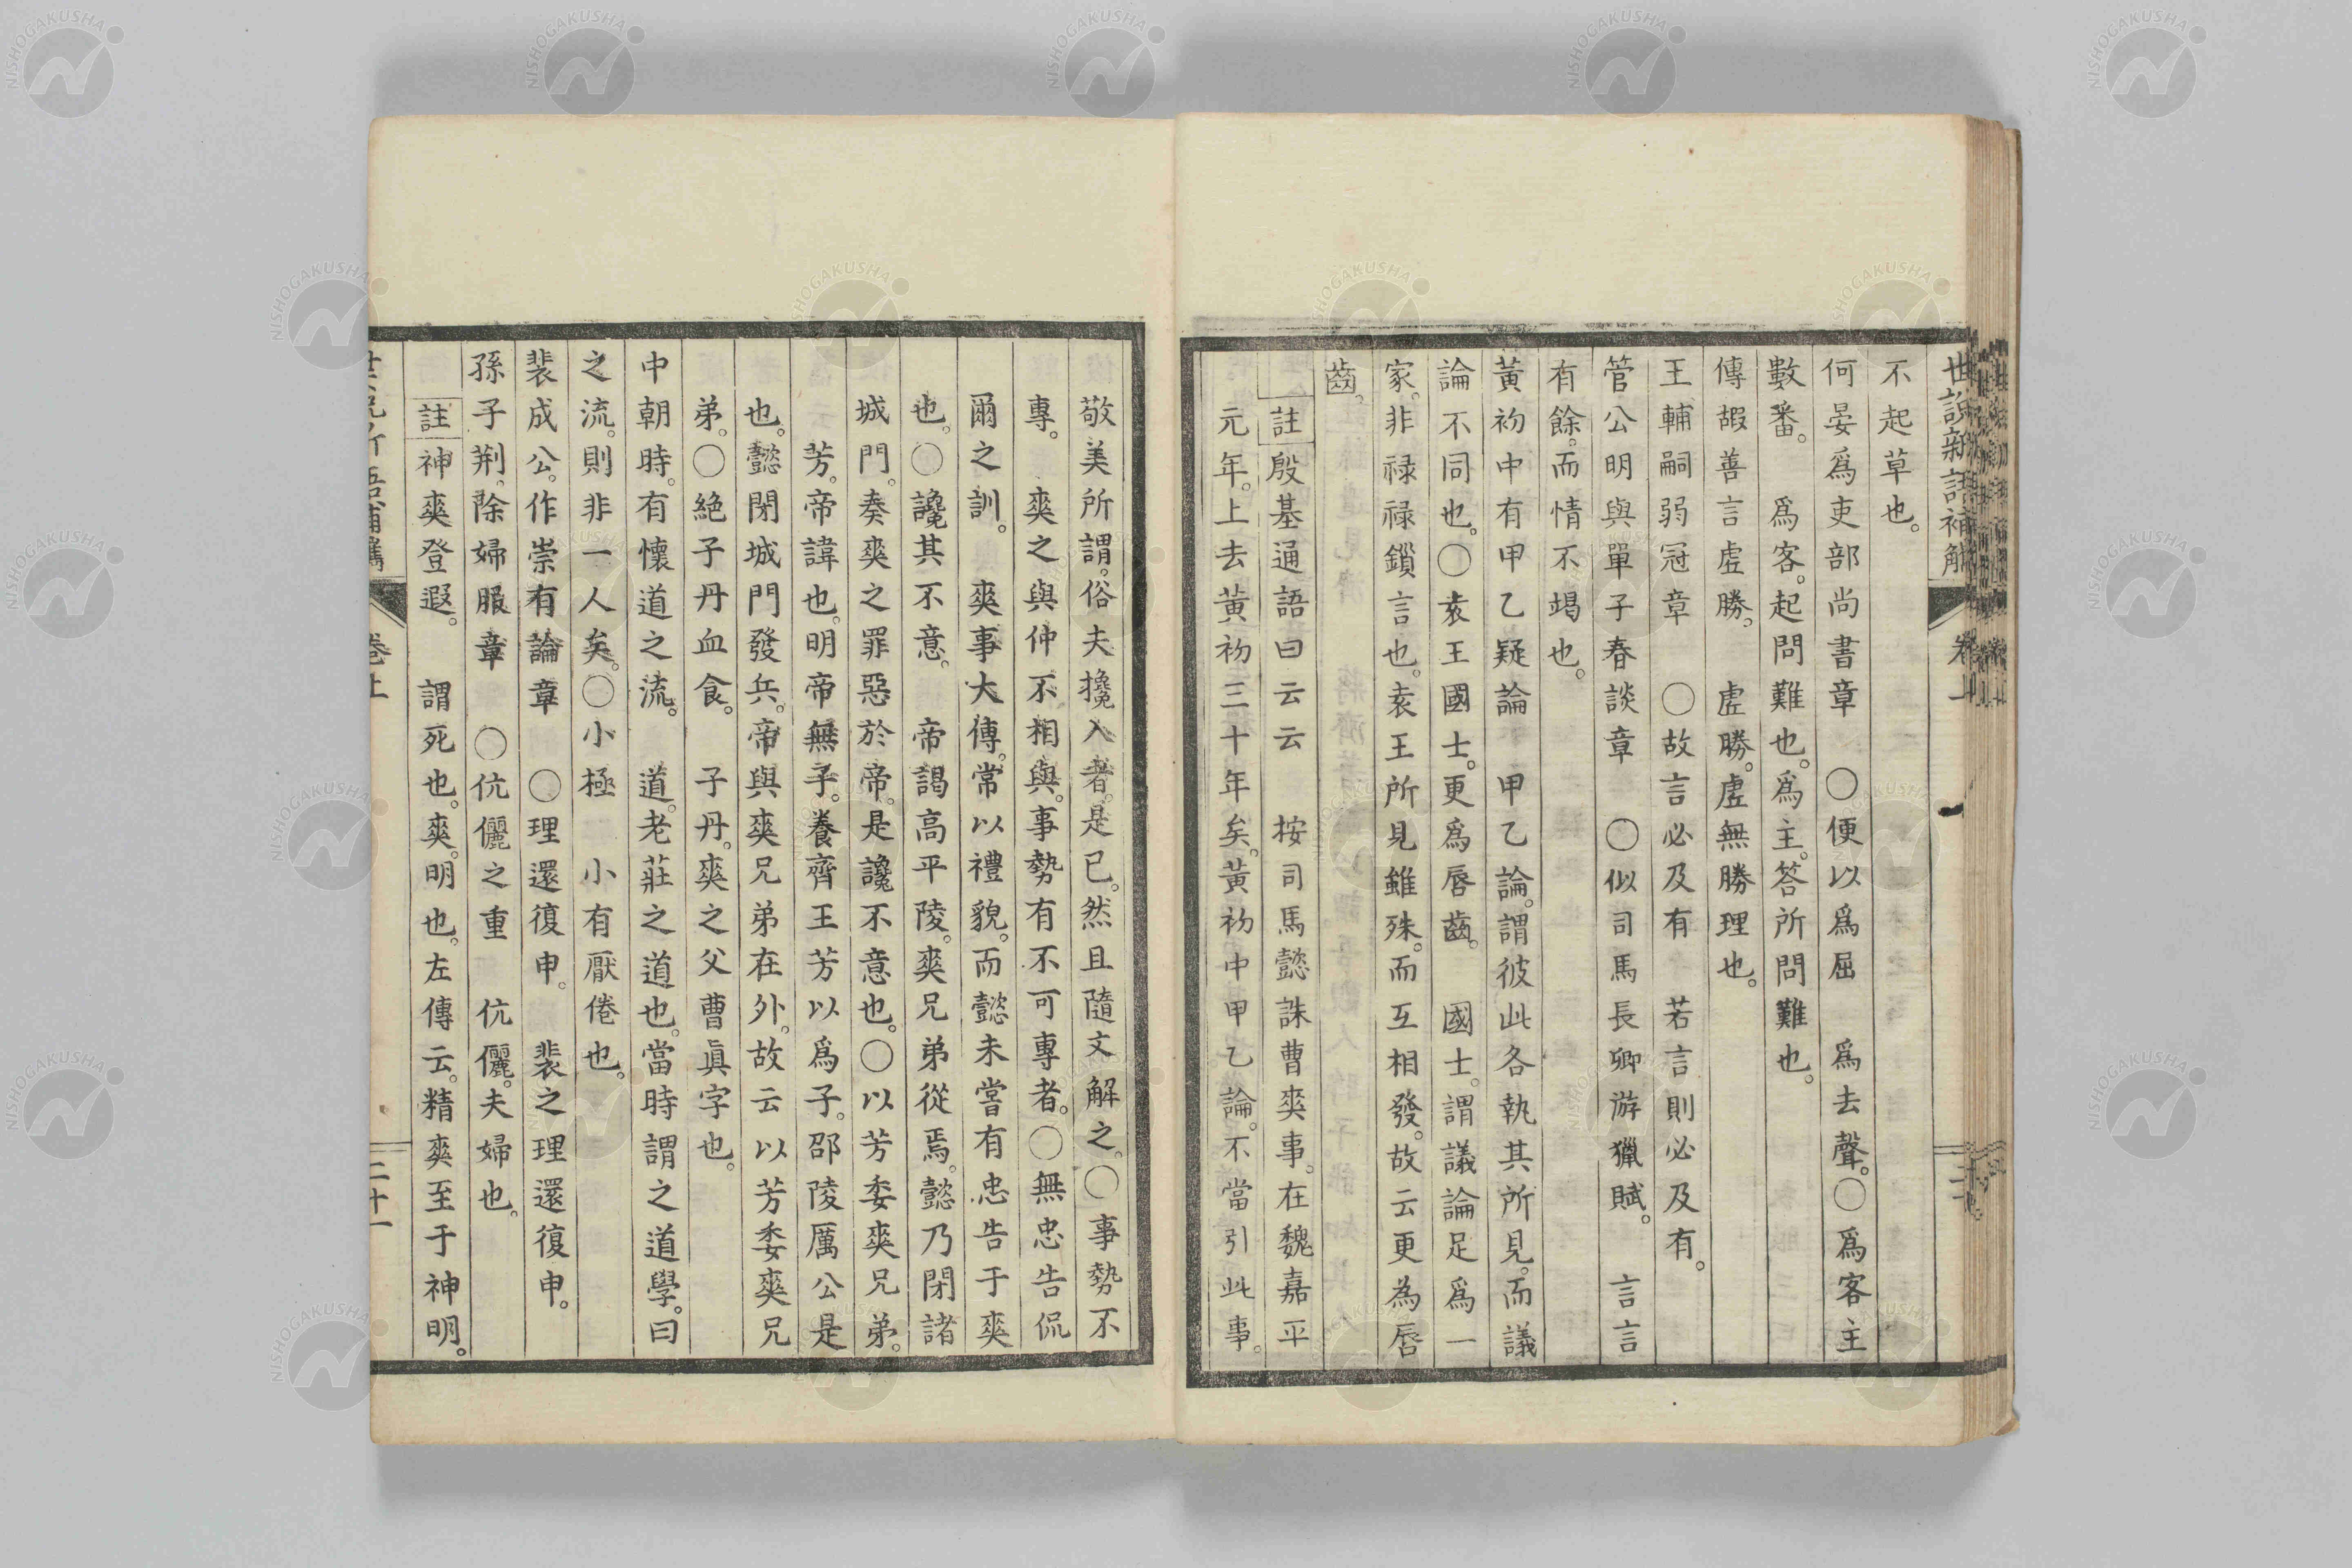 世說新語補觿
卷上
不起草也。
何晏爲吏部尚書章　○便以爲屈　爲去聲。○爲客主
數番。　爲客。起問難也。爲主。答所問難也。
傅嘏善言虛勝。　虛勝。虛無勝理也。
王輔嗣弱冠章　○故言必及有　若言則必及有。
管公明與單子春談章　○似司馬長卿游獵賦。　言言
有餘。而情不竭也。
黃初中有甲乙疑論　甲乙論。謂彼此各執其所見。而議
論不同也。○袁王國士。更爲唇齒。　國士。謂議論足爲一
家。非祿祿鎖言也。袁王所見雖殊。而互相發。故云更為唇
齒。
註　殷基通語曰云云　按司馬懿誅曹爽事。在魏嘉平
元年。上去黃初三十年矣。黃初中甲乙論。不當引此事。
敬美所謂。俗夫攙入者。是已。然且隨文解之。○事勢不
專。　爽之與仲不相與。事勢有不可專者。○無忠告侃
爾之訓。　爽事大傅。常以禮貌。而懿未嘗有忠告于爽
也。○讒其不意。　帝謁高平陵。爽兄弟從焉。懿乃閉諸
城門。奏爽之罪惡於帝。是讒不意也。○以芳委爽兄弟。
芳。帝諱也。明帝無子。養齊王芳以爲子。邵陵厲公是
也。懿閉城門發兵。帝與爽兄弟在外。故云以芳委爽兄
弟。○絕子丹血食。　子丹。爽之父曹眞字也。
中朝時。有懷道之流。　道。老莊之道也。當時謂之道學。曰
之流。則非一人矣。○小極　小有厭倦也。
裴成公。作崇有論章　○理還復申。　裴之理還復申。
孫子荊。除婦服章　○伉儷之重　伉儷。夫婦也。
註　神爽登遐。　謂死也。爽。明也。左傳云。精爽至于神明。
卷上
二十一